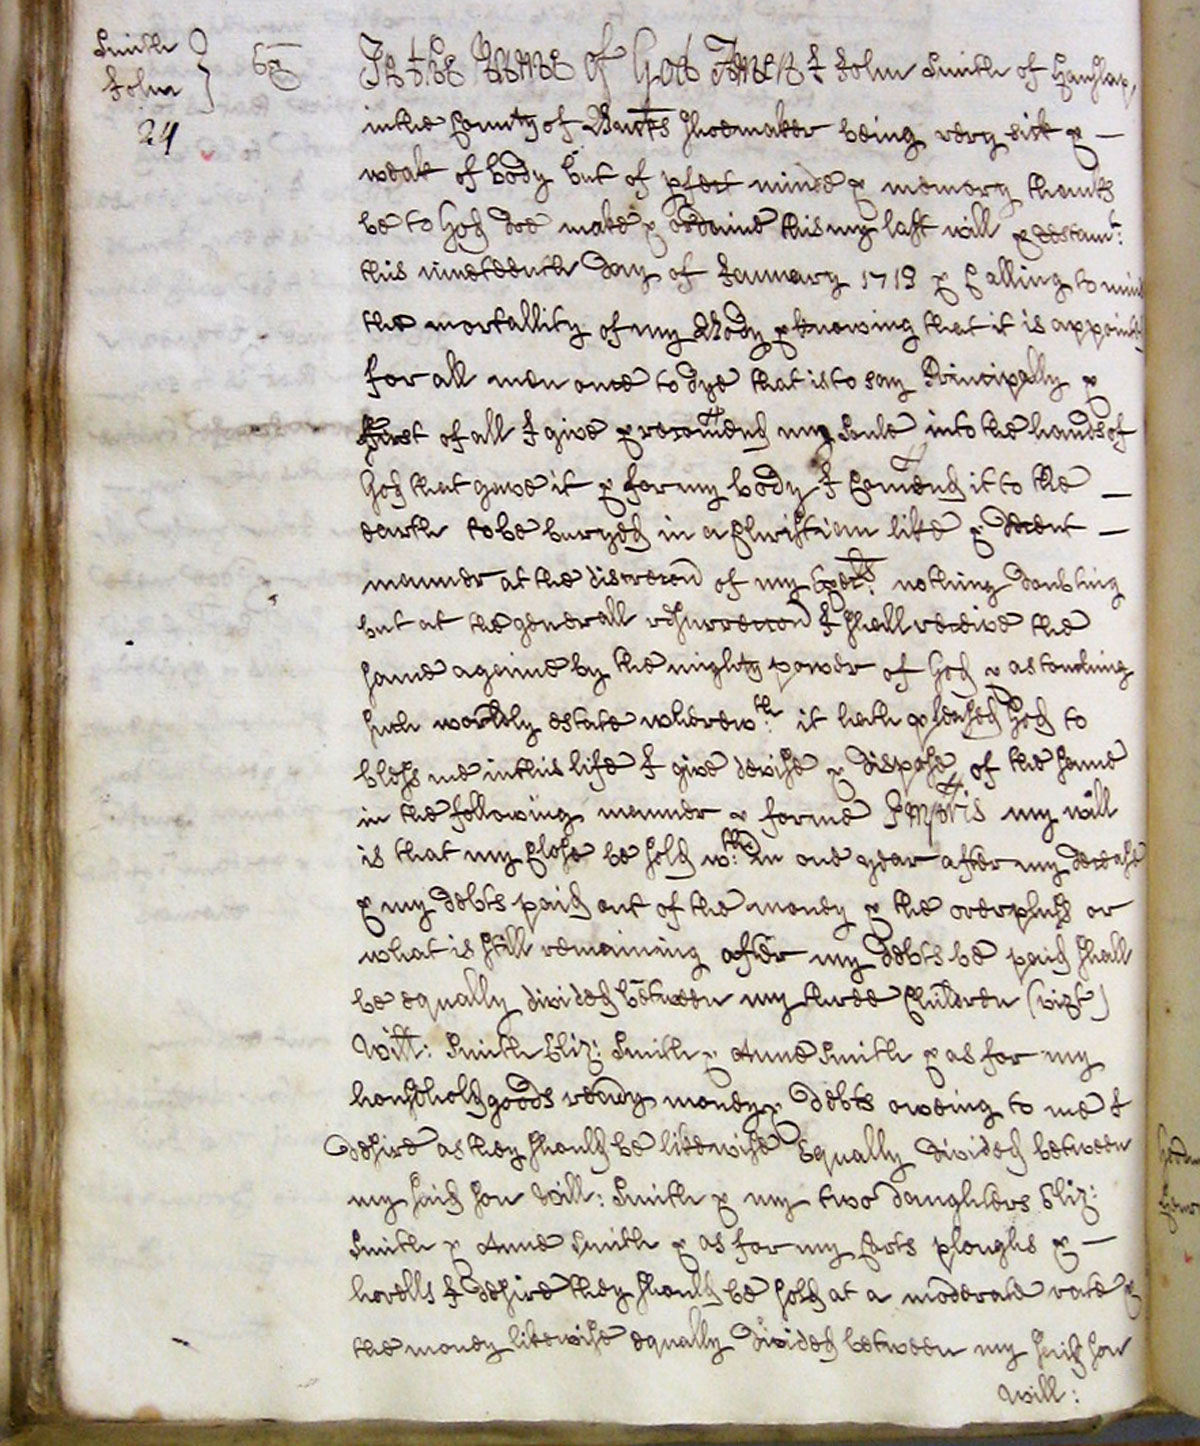 Smith
John
24
In the Name of God Amen I John Smith of Hanslap,
in the County of Bucks Shoemaker being very sick & —
weak of body but of pfect minde & memory thanks
be to God doe make & ordaine this my last will & testamt:
this nineteenth day of January 1719 & Calling to mind
the mortallity of my Body & knowing that it is appointed
for all men once to dye that is to say Principally &
first of all I give & recomend my Soule into the hands of
God that gave it & for my body I Comend it to the —
earth to be buryed in a Christian like & decent —
manner at the discrecon of my Exectrs: nothing doubting
but at the generall resurreccon I shall receive the
same againe by the mighty power of God & as touching
such worldly estate wherewth: it hath pleased God to
bless me in this life I give devise & dispose of the same
in the following manner & forme Impris my will
is that my Close be sold wth:in one year after my decease
& my debts paid out of the money & the overpluss or
what is still remaining after my debts be paid shall
be equally divided between my three Children (vizt)
Will: Smith Eliz: Smith & Anne Smith & as for my
household goods ready money & debts oweing to me I
desire as they should be likewise Equally divided between
my said son Will: Smith & my two daughters Eliz:
Smith & Anne Smith & as for my Carts ploughs & —
hovells I desire they should be sold at a moderate rate &
the money likewise equally divided between my said son
Will: